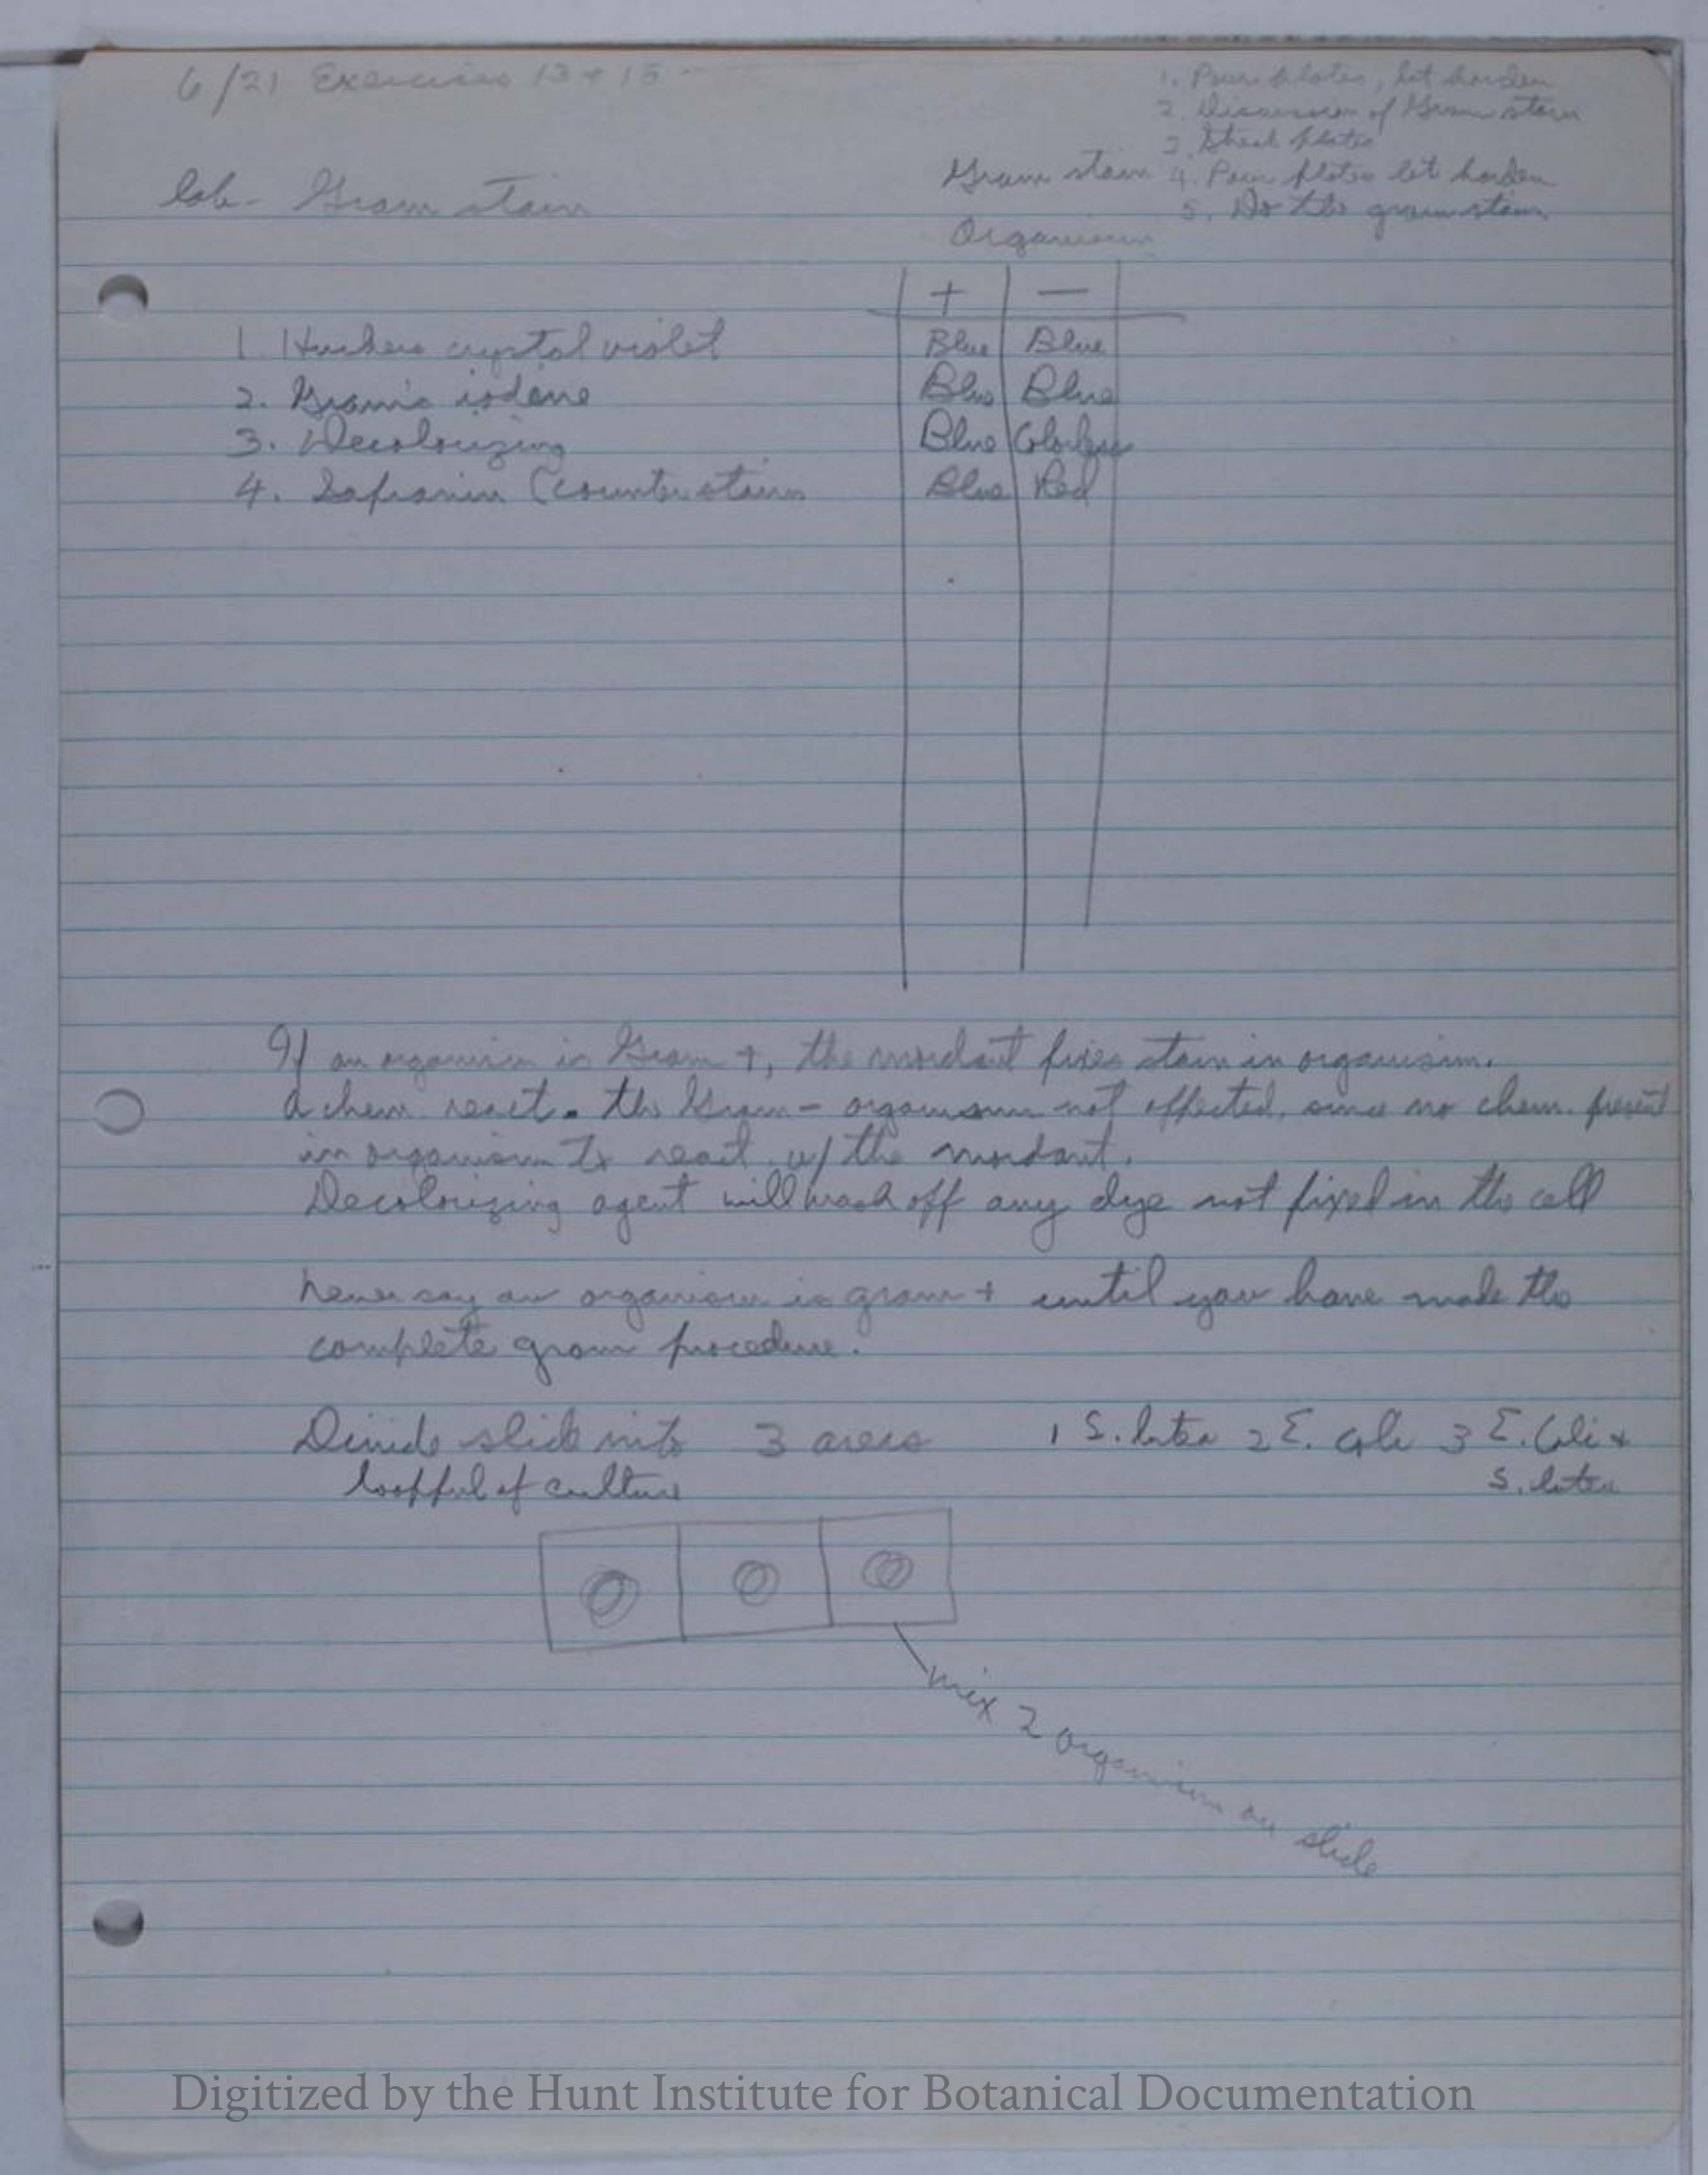 6/21 Exercises 13 + 15 -
1. Pour plates, let harden
2. Discussion of Gram stain
3. Streak plates
4. Pour plates let harden
5. Do the gram stain
Lab - Gram stain
Gram stain
Organism
+ -
1. Huckers crystal violet Blue Blue
2. Gram's iodine Blue Blue
3. Decolorizing Blue Colorless
4. Safranin (counter stain Blue Red
If an organism is Gram +, the mordant fixes stain in organism.
A chem react. The Gram - organism not affected, since no chem. present
in organism to react w/ the mordant.
Decolorizing agent will wash off any dye not fixed in the cell
never say an organism is gram + until you have made the
complete gram procedure.
Divide slide into 3 areas 1 S. lutea 2 E. coli 3 E. Coli +
loopful of culture S. lutea
mix 2 organism on slide
Digitized by the Hunt Institute for Botanical Documentation